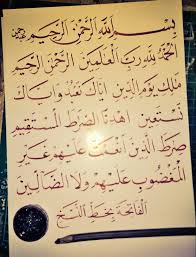 بسم الله الرحمن الرحيم
الحمد لله رب العالمين الرحمن الرحيم
مالك يوم الدين اياك نعبد واياك
نستعين اهدنا الصراط المستقيم
صراط الذين انعمت عليهم غير
المغضوب عليهم ولا الضالين
الفاتحة بخط النسخ